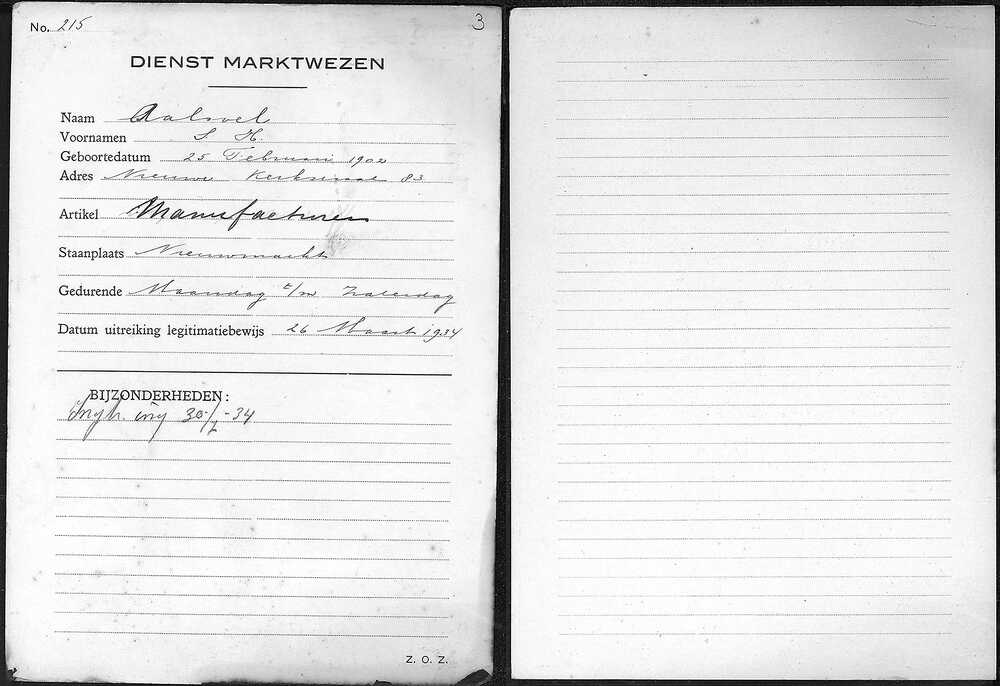 No. 215
3
DIENST MARKTWEZEN
Naam Aalsvel
Voornamen S. H.
Geboortedatum 25 Februari 1902
Adres Nieuwe Kerkstraat 83
Artikel Manufacturen
Staanplaats Nieuwmarkt
Gedurende Maandag t/m Zaterdag
Datum uitreiking legitimatiebewijs 26 Maart 1934
BIJZONDERHEDEN:
30/7-34
Z. O. Z.